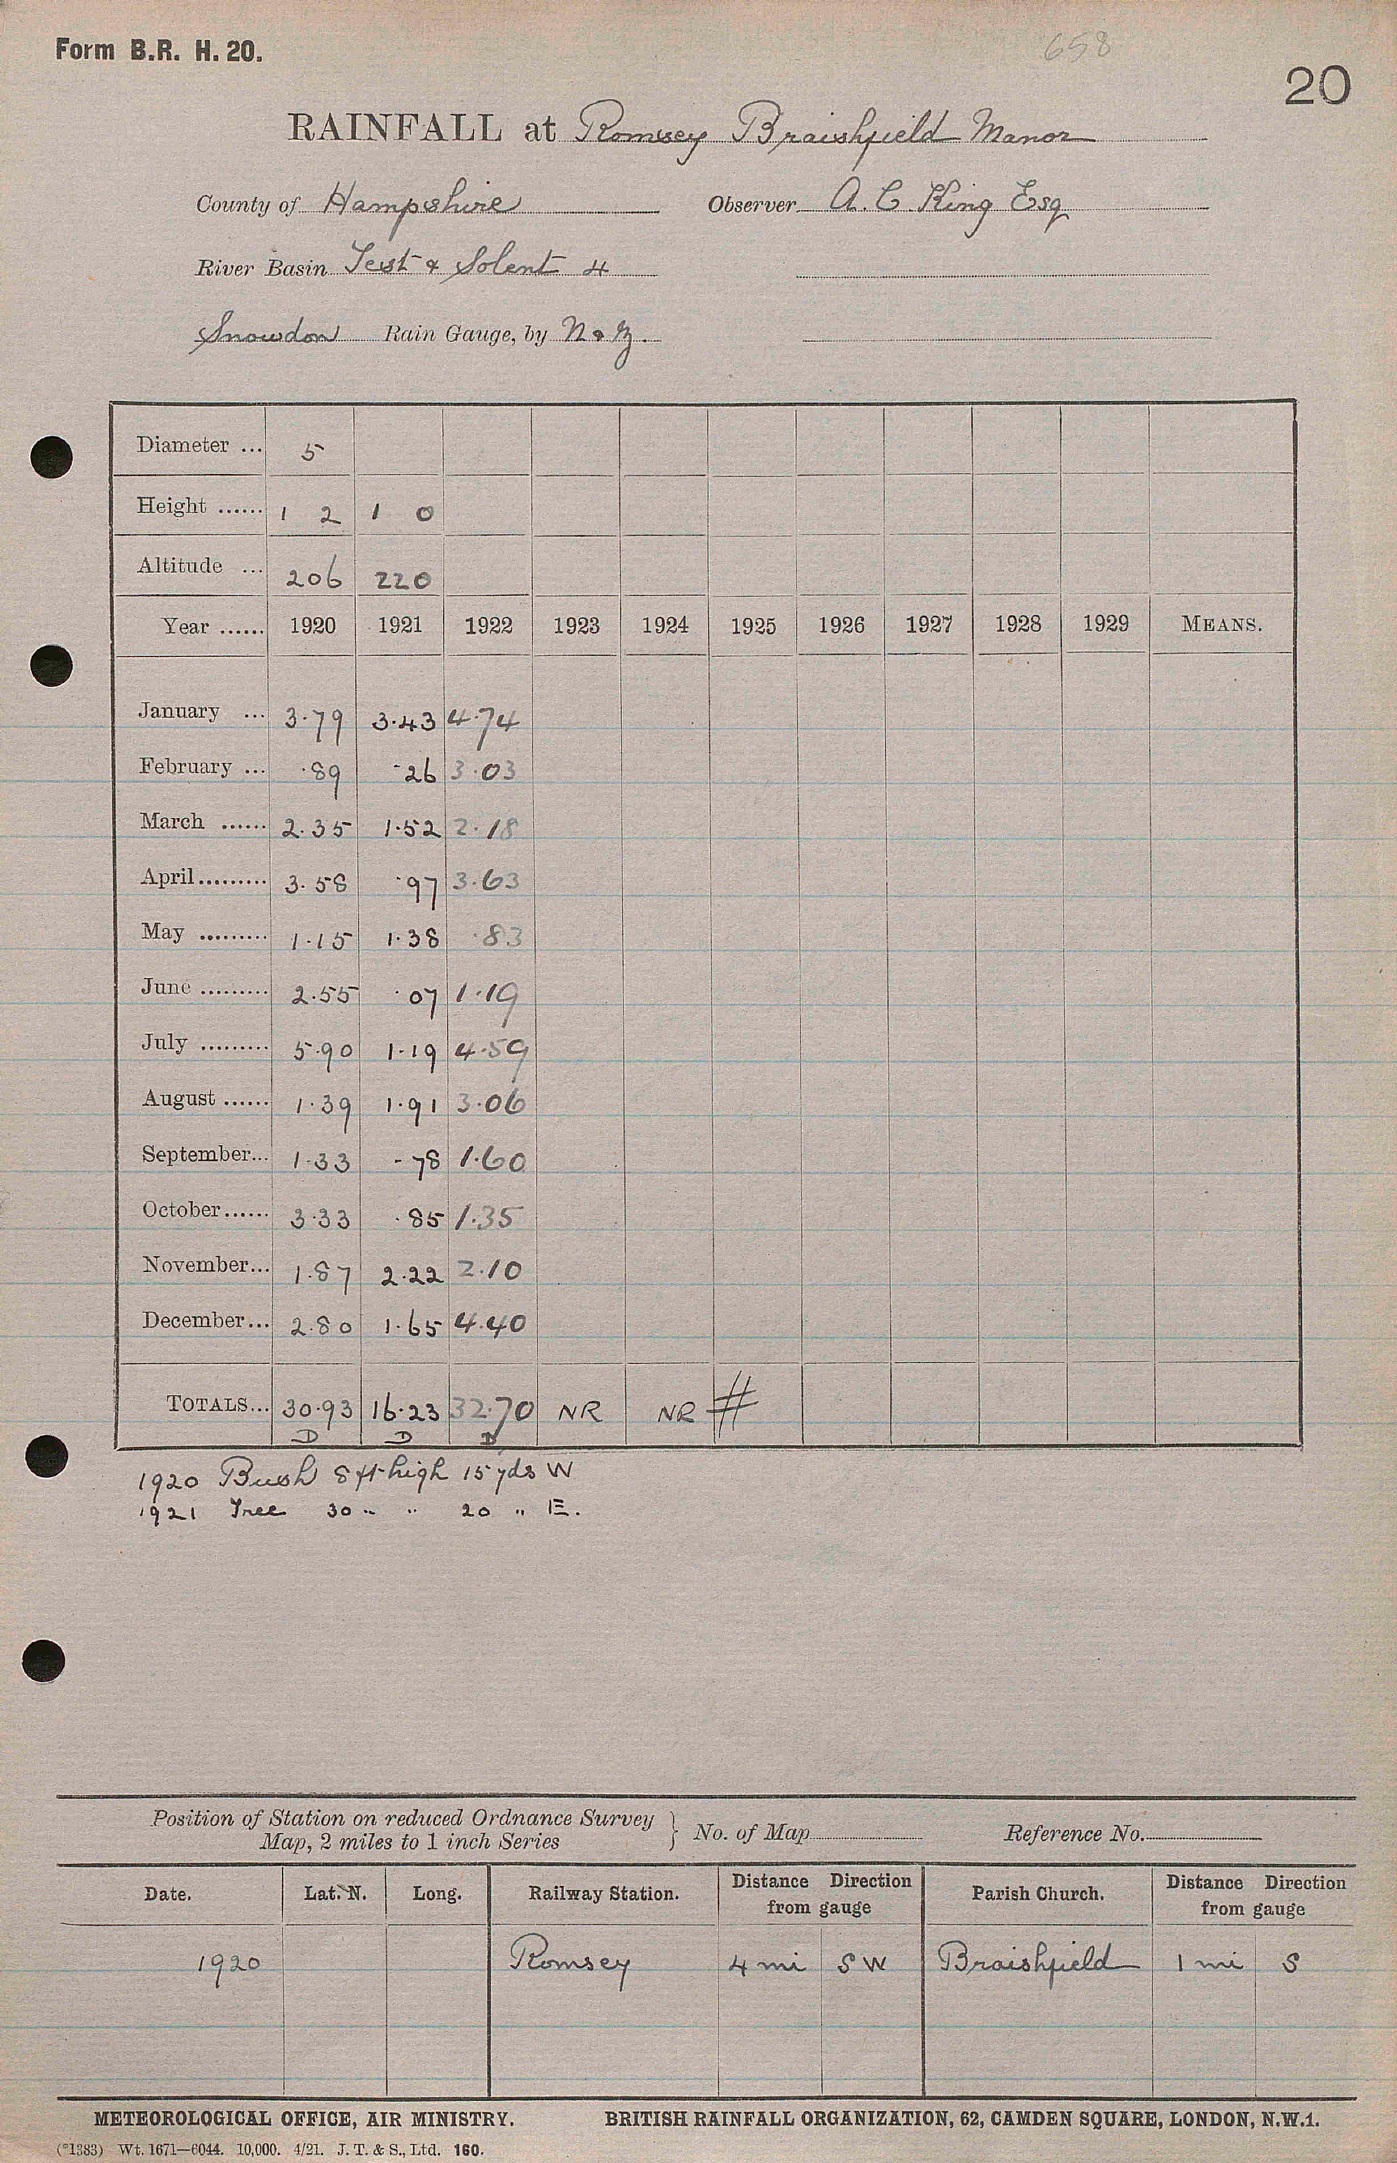 Form B.R. H. 20.
658
20
RAINFALL at Romsey Braishfield Manor
County of Hampshire Observer A. C. King Esq
River Basin Test & Solent 4
Snowdon Rain Gauge, by N & Z.
Diameter ... 5
Height ...... 1 2 1 0
Altitude ... 206 220
Year ...... 1920 1921 1922 1923 1924 1925 1926 1927 1928 1929 MEANS.
January ... 3.79 3.43 4.74
February ... .89 .26 3.03
March ...... 2.35 1.52 2.18
April......... 3.58 .97 3.63
May ......... 1.15 1.38 .83
June ......... 2.55 .07 1.19
July ......... 5.90 1.19 4.59
August ...... 1.39 1.91 3.06
September... 1.33 .78 1.60
October...... 3.33 .85 1.35
November... 1.87 2.22 2.10
December... 2.80 1.65 4.40
TOTALS... 30.93 16.23 32.70 NR NR #
D D D
1920 Bush 8 ft high 15 yds W
1921 Tree 30 " " 20 " E.
Position of Station on reduced Ordnance Survey
Map, 2 miles to 1 inch Series } No. of Map Reference No.
Date. Lat. N. Long. Railway Station. Distance Direction from gauge Parish Church. Distance Direction from gauge
1920 Romsey 4 mi S W Braishfield 1 mi S
METEOROLOGICAL OFFICE, AIR MINISTRY. BRITISH RAINFALL ORGANIZATION, 62, CAMDEN SQUARE, LONDON, N.W.1.
(*1383) Wt. 1671—6044. 10,000. 4/21. J. T. & S., Ltd. 160.